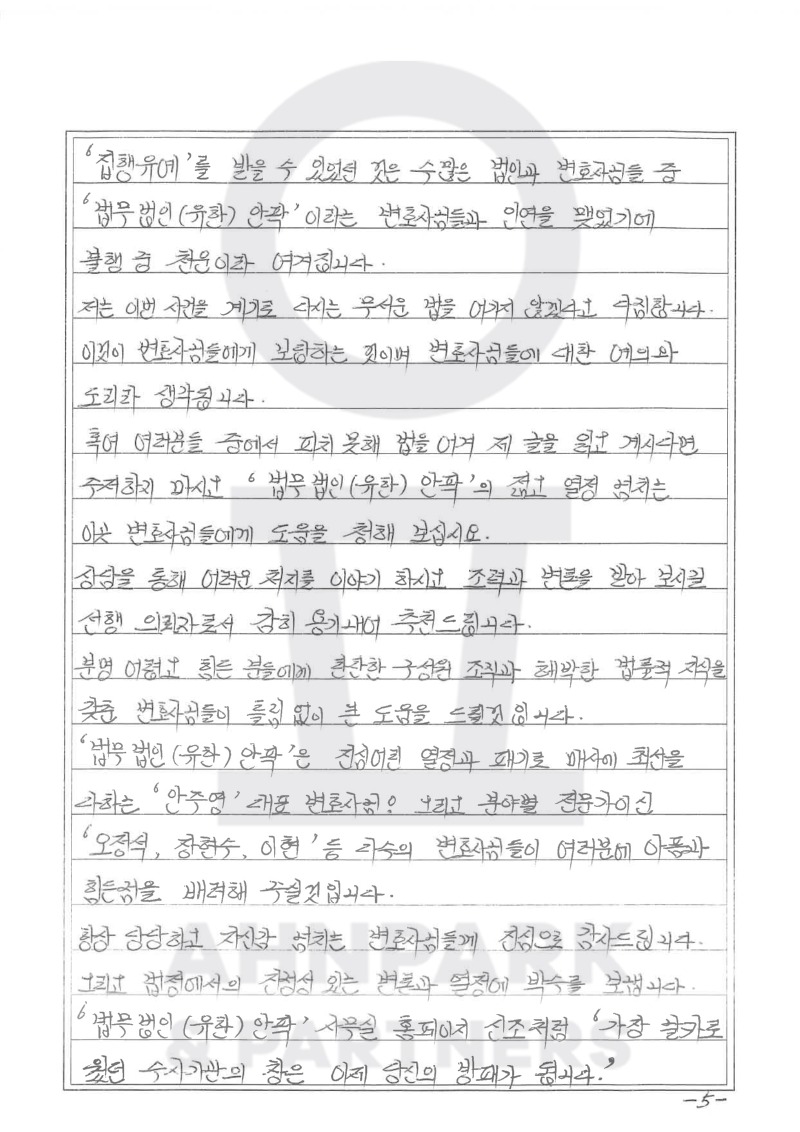 '집행유예'를 받을 수 있었던 것은 수많은 법인과 변호사님들 중
'법무법인(유한) 안팍'이라는 변호사님들과 인연을 맺었기에
불행 중 천운이라 여겨집니다.
저는 이번 사건을 계기로 다시는 무서운 법을 어기지 않겠다고 다짐합니다.
이것이 변호사님들에게 보답하는 것이며 변호사님들에 대한 예의와
도리라 생각됩니다.
혹여 여러분들 중에서 피치 못해 법을 어겨 제 글을 읽고 계시다면
주저하지 마시고 '법무법인(유한) 안팍'의 젊고 열정 넘치는
이곳 변호사님들에게 도움을 청해 보십시요.
상담을 통해 어려운 처지를 이야기 하시고 조력과 변론을 받아 보시길
선행 의뢰자로서 감히 용기내어 추천드립니다.
분명 어렵고 힘든 분들에게 탄탄한 구성원 조직과 해박한 법률적 지식을
갖춘 변호사님들이 틀림 없이 큰 도움을 드릴것 입니다.
'법무법인(유한) 안팍'은 진심어린 열정과 패기로 매사에 최선을
다하는 '안주영' 대표 변호사님? 그리고 분야별 전문가이신
'오정석, 장현수, 이현' 등 다수의 변호사님들이 여러분에 아픔과
힘든점을 배려해 주실것입니다.
항상 당당하고 자신감 넘치는 변호사님들께 진심으로 감사드립니다.
그리고 법정에서의 진정성 있는 변론과 열정에 박수를 보냅니다.
'법무법인(유한) 안팍' 사무실 홈페이지 신조처럼 '가장 날카로
웠던 수사기관의 창은 이제 당신의 방패가 됩니다.'
AHNPARK
& PARTNERS
-5-